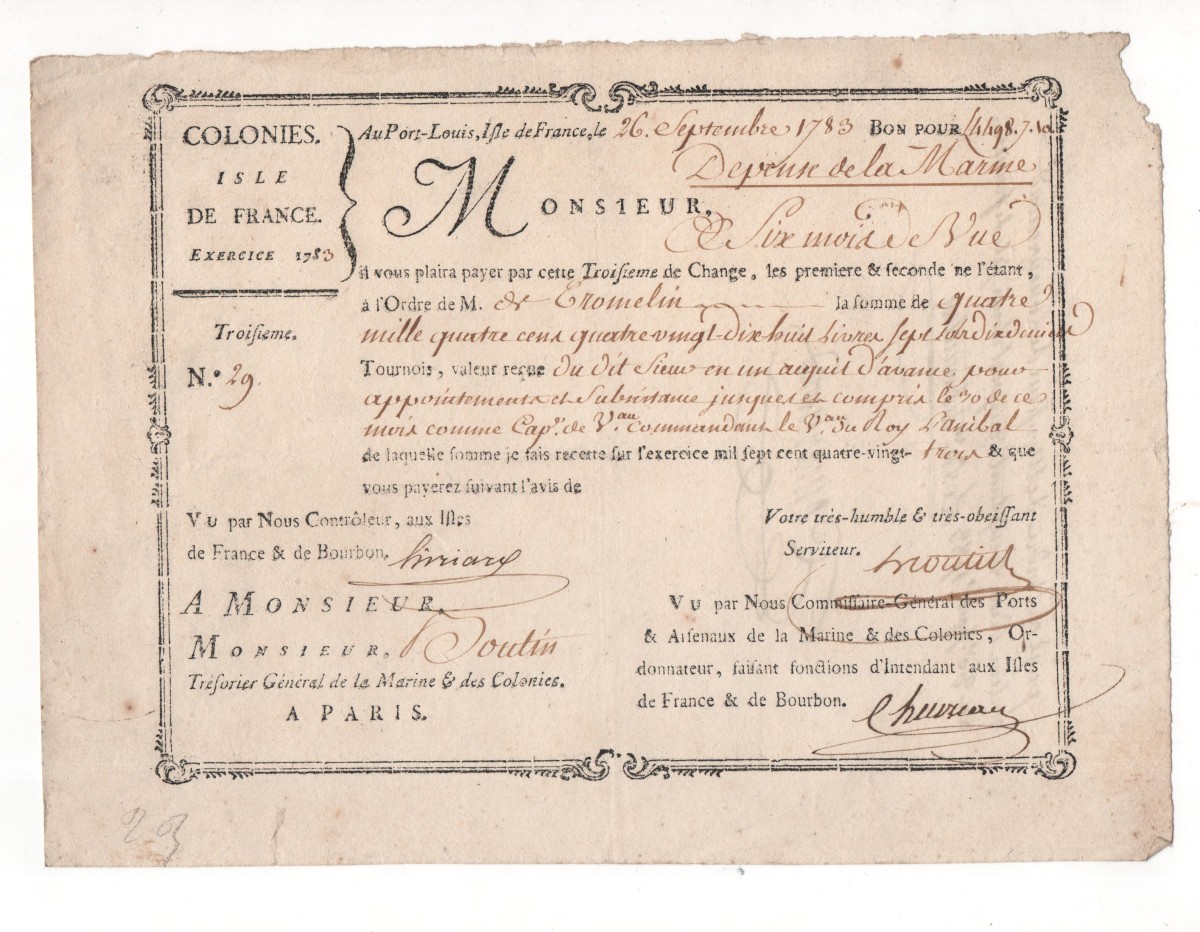 COLONIES.
ISLE
DE FRANCE.
EXERCICE 1783
Troisieme.
N.º 29.
Au Port-Louis, Isle de France, le 26. Septembre 1783 BON POUR 4498.7.10d
Depense de la Marine
MONSIEUR,
à Six mois de Vue
Il vous plaira payer par cette Troisieme de Change, les premiere & seconde ne l'étant,
à l'Ordre de M. de Tromelin la somme de quatre
mille quatre cens quatre vingt-dix huit Livres sept sols dix deniers
Tournois, valeur reçue du dit Sieur en un acquit d'avance pour
appointements et Subsistance jusques et compris le 30 de ce
mois comme Cap.e de V.au commandant le V.au du Roy L'anibal
de laquelle somme je fais recette sur l'exercice mil sept cent quatre-vingt-trois & que
vous payerez suivant l'avis de
VU par Nous Contrôleur, aux Isles
de France & de Bourbon.
Votre très-humble & très-obeissant
Serviteur.
A MONSIEUR,
MONSIEUR, Boutin
Trésorier Général de la Marine & des Colonies.
A PARIS.
VU par Nous Commissaire-Général des Ports
& Arsenaux de la Marine & des Colonies, Or-
donnateur, faisant fonctions d'Intendant aux Isles
de France & de Bourbon. Chevreau
23